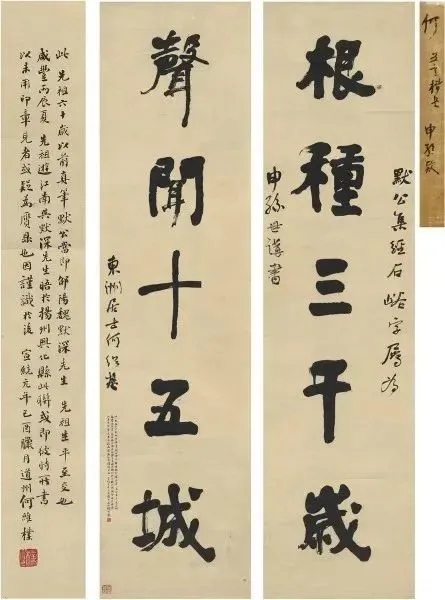 默公集經石峪字屬為
根種三千歲
申孫世講書
聲聞十五城
東洲居士何紹基
此 先祖六十歲以前真筆默公當即邵陽魏默深先生 先祖生平至交也
咸豐丙辰夏 先祖遊江南與默深先生晤於揚州興化縣此聯或即彼時所書
以未用印章見者或疑為贋鼎也因謹識於後 宣統元年己酉臘月道州何維樸